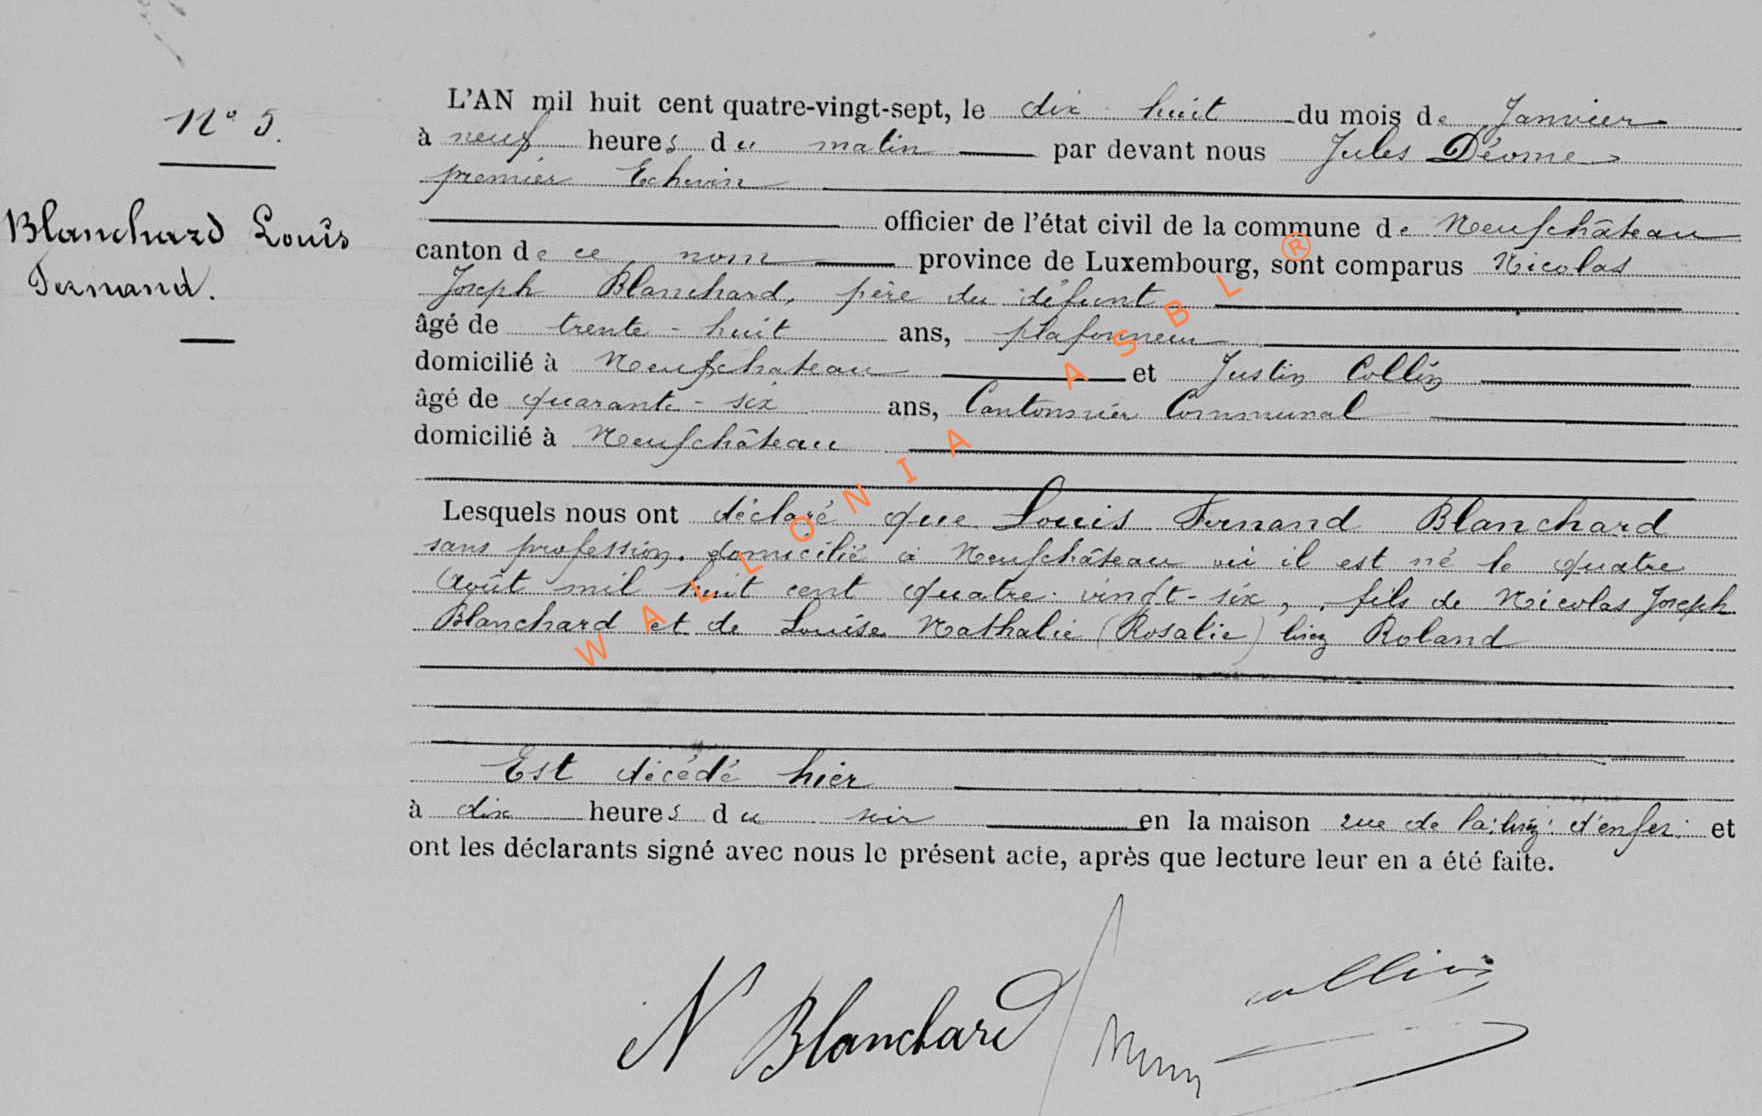 N° 5.
Blanchard Louis
Fernand.
L'AN mil huit cent quatre-vingt-sept, le dix huit du mois de Janvier
à neuf heures du matin par devant nous Jules Déome
premier Echevin
officier de l'état civil de la commune de Neufchâteau
canton de ce nom province de Luxembourg, sont comparus Nicolas
Joseph Blanchard, père du défunt
âgé de trente-huit ans, plafonneur
domicilié à Neufchateau et Justin Collin
âgé de quarante-six ans, Cantonnier Communal
domicilié à Neufchâteau
Lesquels nous ont déclaré que Louis Fernand Blanchard
sans profession, domicilié à Neufchâteau où il est né le quatre
Août mil huit cent quatre-vingt-six, fils de Nicolas Joseph
Blanchard et de Louise Nathalie (Rosalie) Roland
Est décédé hier
à dix heures du soir en la maison rue de la d'enfer et
ont les déclarants signé avec nous le présent acte, après que lecture leur en a été faite.
N Blanchard
collin
WALLONIA ASBL ®